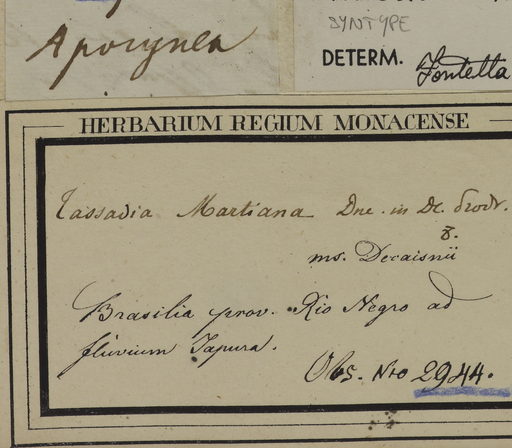 Aporynea
SYNTYPE
DETERM. Fontella
HERBARIUM REGIUM MONACENSE
Tassadia Martiana Dne. in Dc. Prodr.
8.
ms. Decaisnii
Brasilia prov. Rio Negro ad
fluvium Japura.
Obs. Nro 2944.